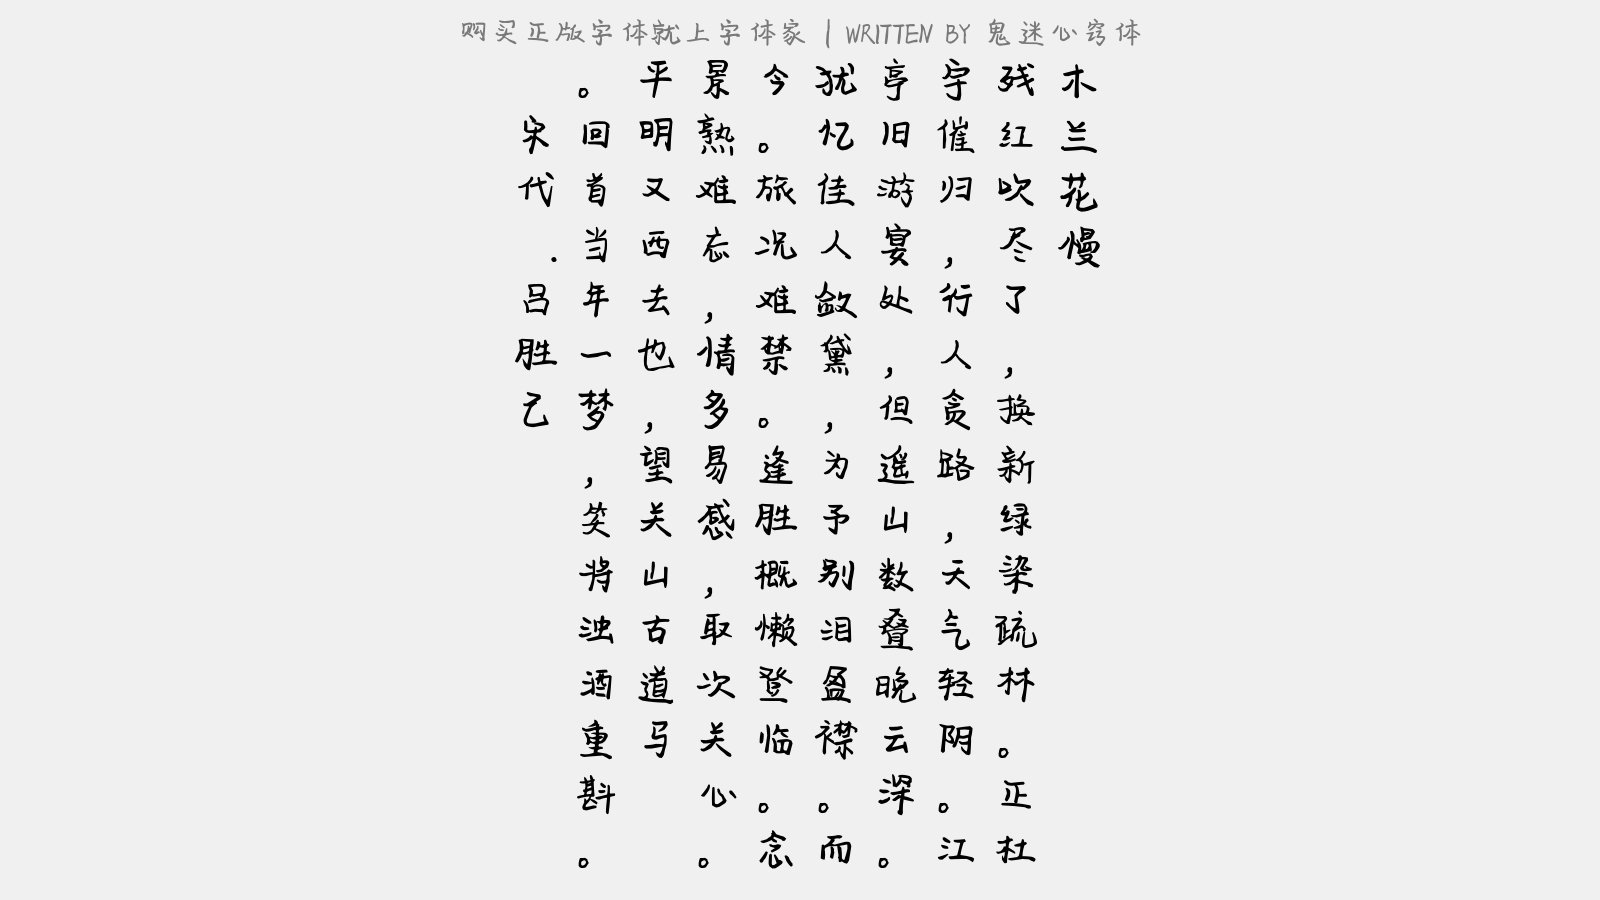 购买正版字体就上字体家 | WRITTEN BY 鬼迷心窍体
木兰花慢
残红吹尽了，换新绿染疏林。正杜
宇催归，行人贪路，天气轻阴。江
亭旧游宴处，但遥山数叠晚云深。
犹忆佳人敛黛，为予别泪盈襟。而
今。旅况难禁。逢胜概懒登临。念
景熟难忘，情多易感，取次关心。
平明又西去也，望关山古道马
。回首当年一梦，笑将浊酒重斟。
宋代.吕胜己